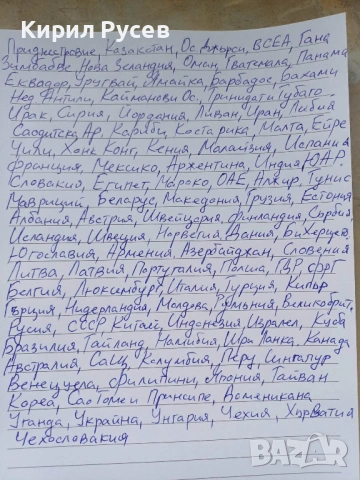 Кирил Русев
Приднестровие, Казакстан, Ос Джърси, ВСЕА, Гана
Зимбабве, Нова Зеландия, Оман, Гватемала, Панама
Еквадор, Уругвай, Ямайка, Барбадос, Бахами
Нед Антили, Кайманови Ос., Тринидад и Тубаго
Ирак, Сирия, Йордания, Ливан, Иран, Либия
Саодитска Ар, Кариби, Коста рика, Малта, Ейре
Чили, Хонк Конг, Кения, Малайзия, Испания
Франция, Мексико, Аржентина, Индия ЮАР
Словакия, Египет, Мароко, ОАЕ, Алжир, Тунис
Мавриций, Беларус, Македония, Грузия, Естония
Албания, Австрия, Швейцария, Финландия, Сърбия
Исландия, Швеция, Норвегия, Дания, Би Херцего
Югославия, Армения, Азербайджан, Словения
Литва, Латвия, Португалия, Полша, ГДР, ФРГ
Белгия, Люксимбург, Италия, Турция, Кипър
Гърция, Нидерландия, Молдова, Румъния, Великобрит.
Русия, СССР, Китай, Индонезия, Израел, Куба
Бразилия, Тайланд, Намибия, Шри Ланка, Канада
Австралия, Сащ, Колумбия, Перу, Сингапур
Венецуела, Филипини, Япония, Тайван
Корея, Сао Томе и Принсипе, Доменикана
Уганда, Украйна, Унгария, Чехия, Хърватия
Чехословакия
BAZAR
.bg